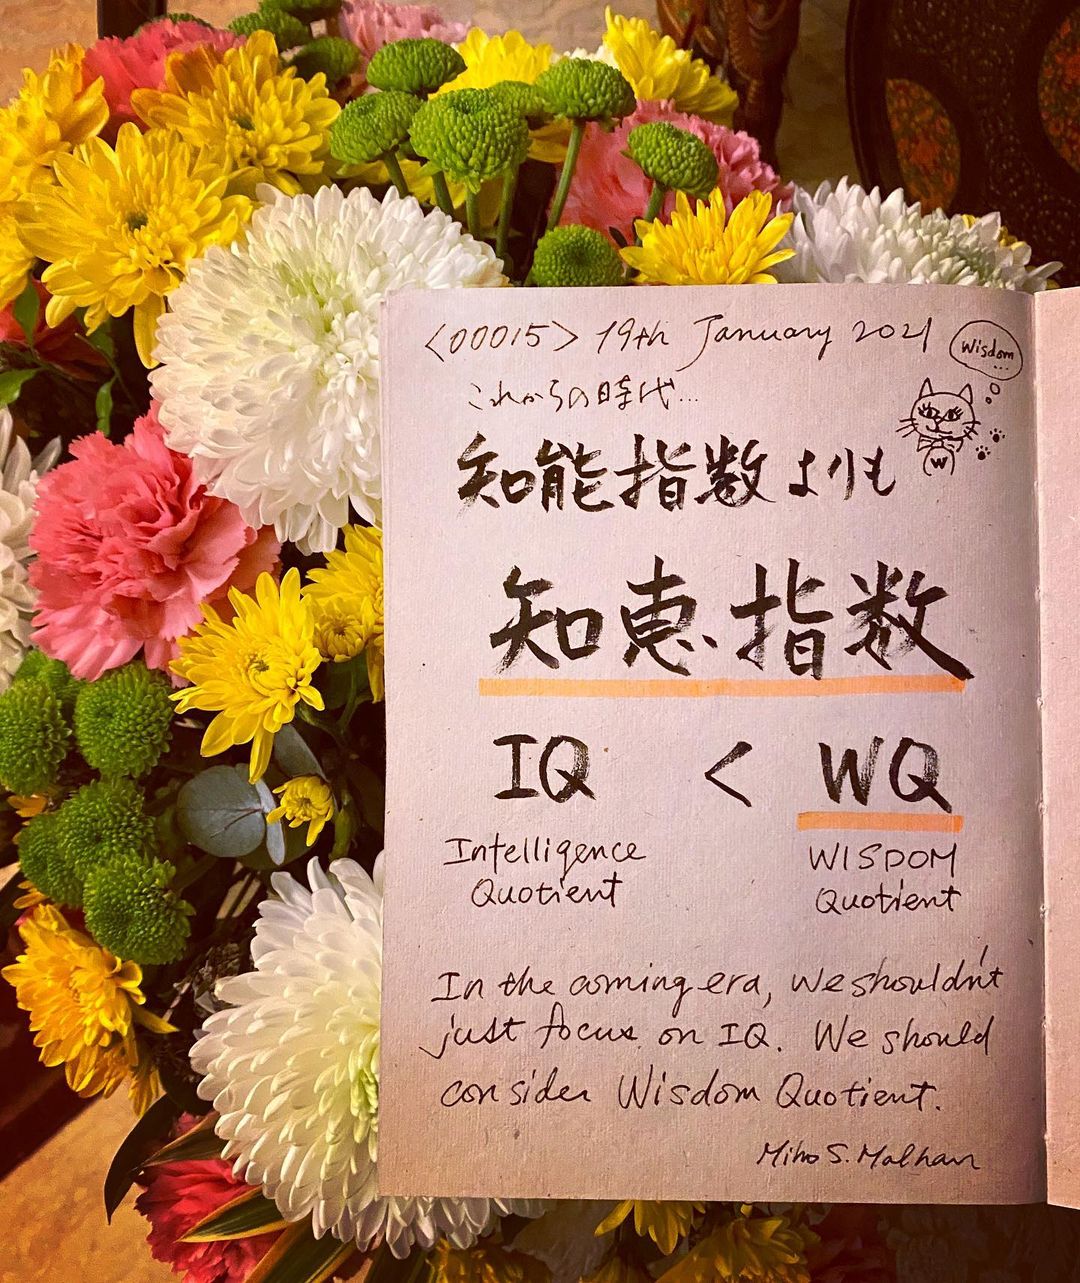 <00015> 19th January 2021
Wisdom...
これからの時代...
知能指数よりも
知恵指数
W
IQ < WQ
Intelligence Quotient
WISDOM Quotient
In the coming era, we shouldn't
just focus on IQ. We should
consider Wisdom Quotient.
Miho S. Malhan